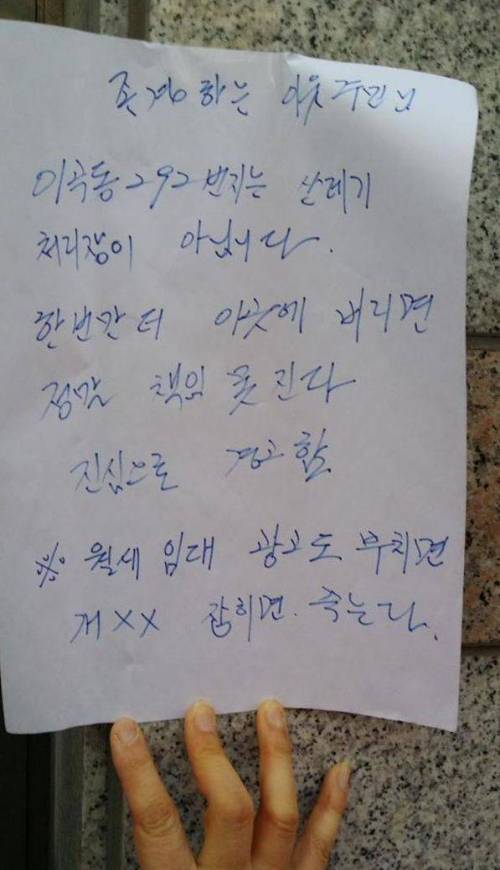 존경하는 이웃 주민님
이곡동 292 번지는 쓰레기
처리장이 아닙니다.
한번만 더 이곳에 버리면
정말 책임 못 진다
진심으로 경고함
※ 월세 임대 광고도 부치면
개XX 잡히면. 죽는다.